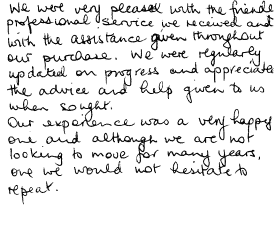 We were very pleased with the friendly
professional service we received and
with the assistance given throughout
our purchase. We were regularly
updated on progress and appreciate
the advice and help given to us
when sought.
Our experience was a very happy
one and although we are not
looking to move for many years,
one we would not hesitate to
repeat.